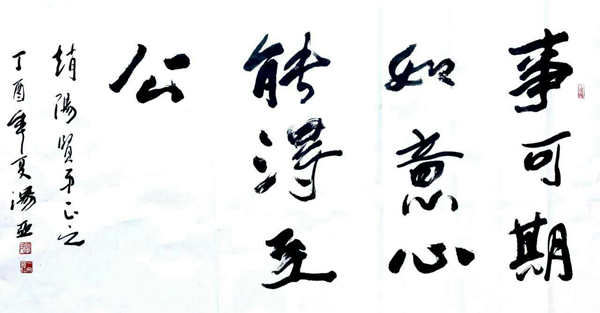 事可期
如意心
能得至
公
趙陽賢弟正之
丁酉年夏